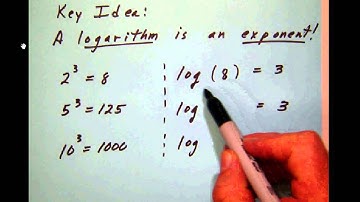 Key Idea:
A logarithm is an exponent!
2³ = 8 log (8) = 3
5³ = 125 log = 3
10³ = 1000 log